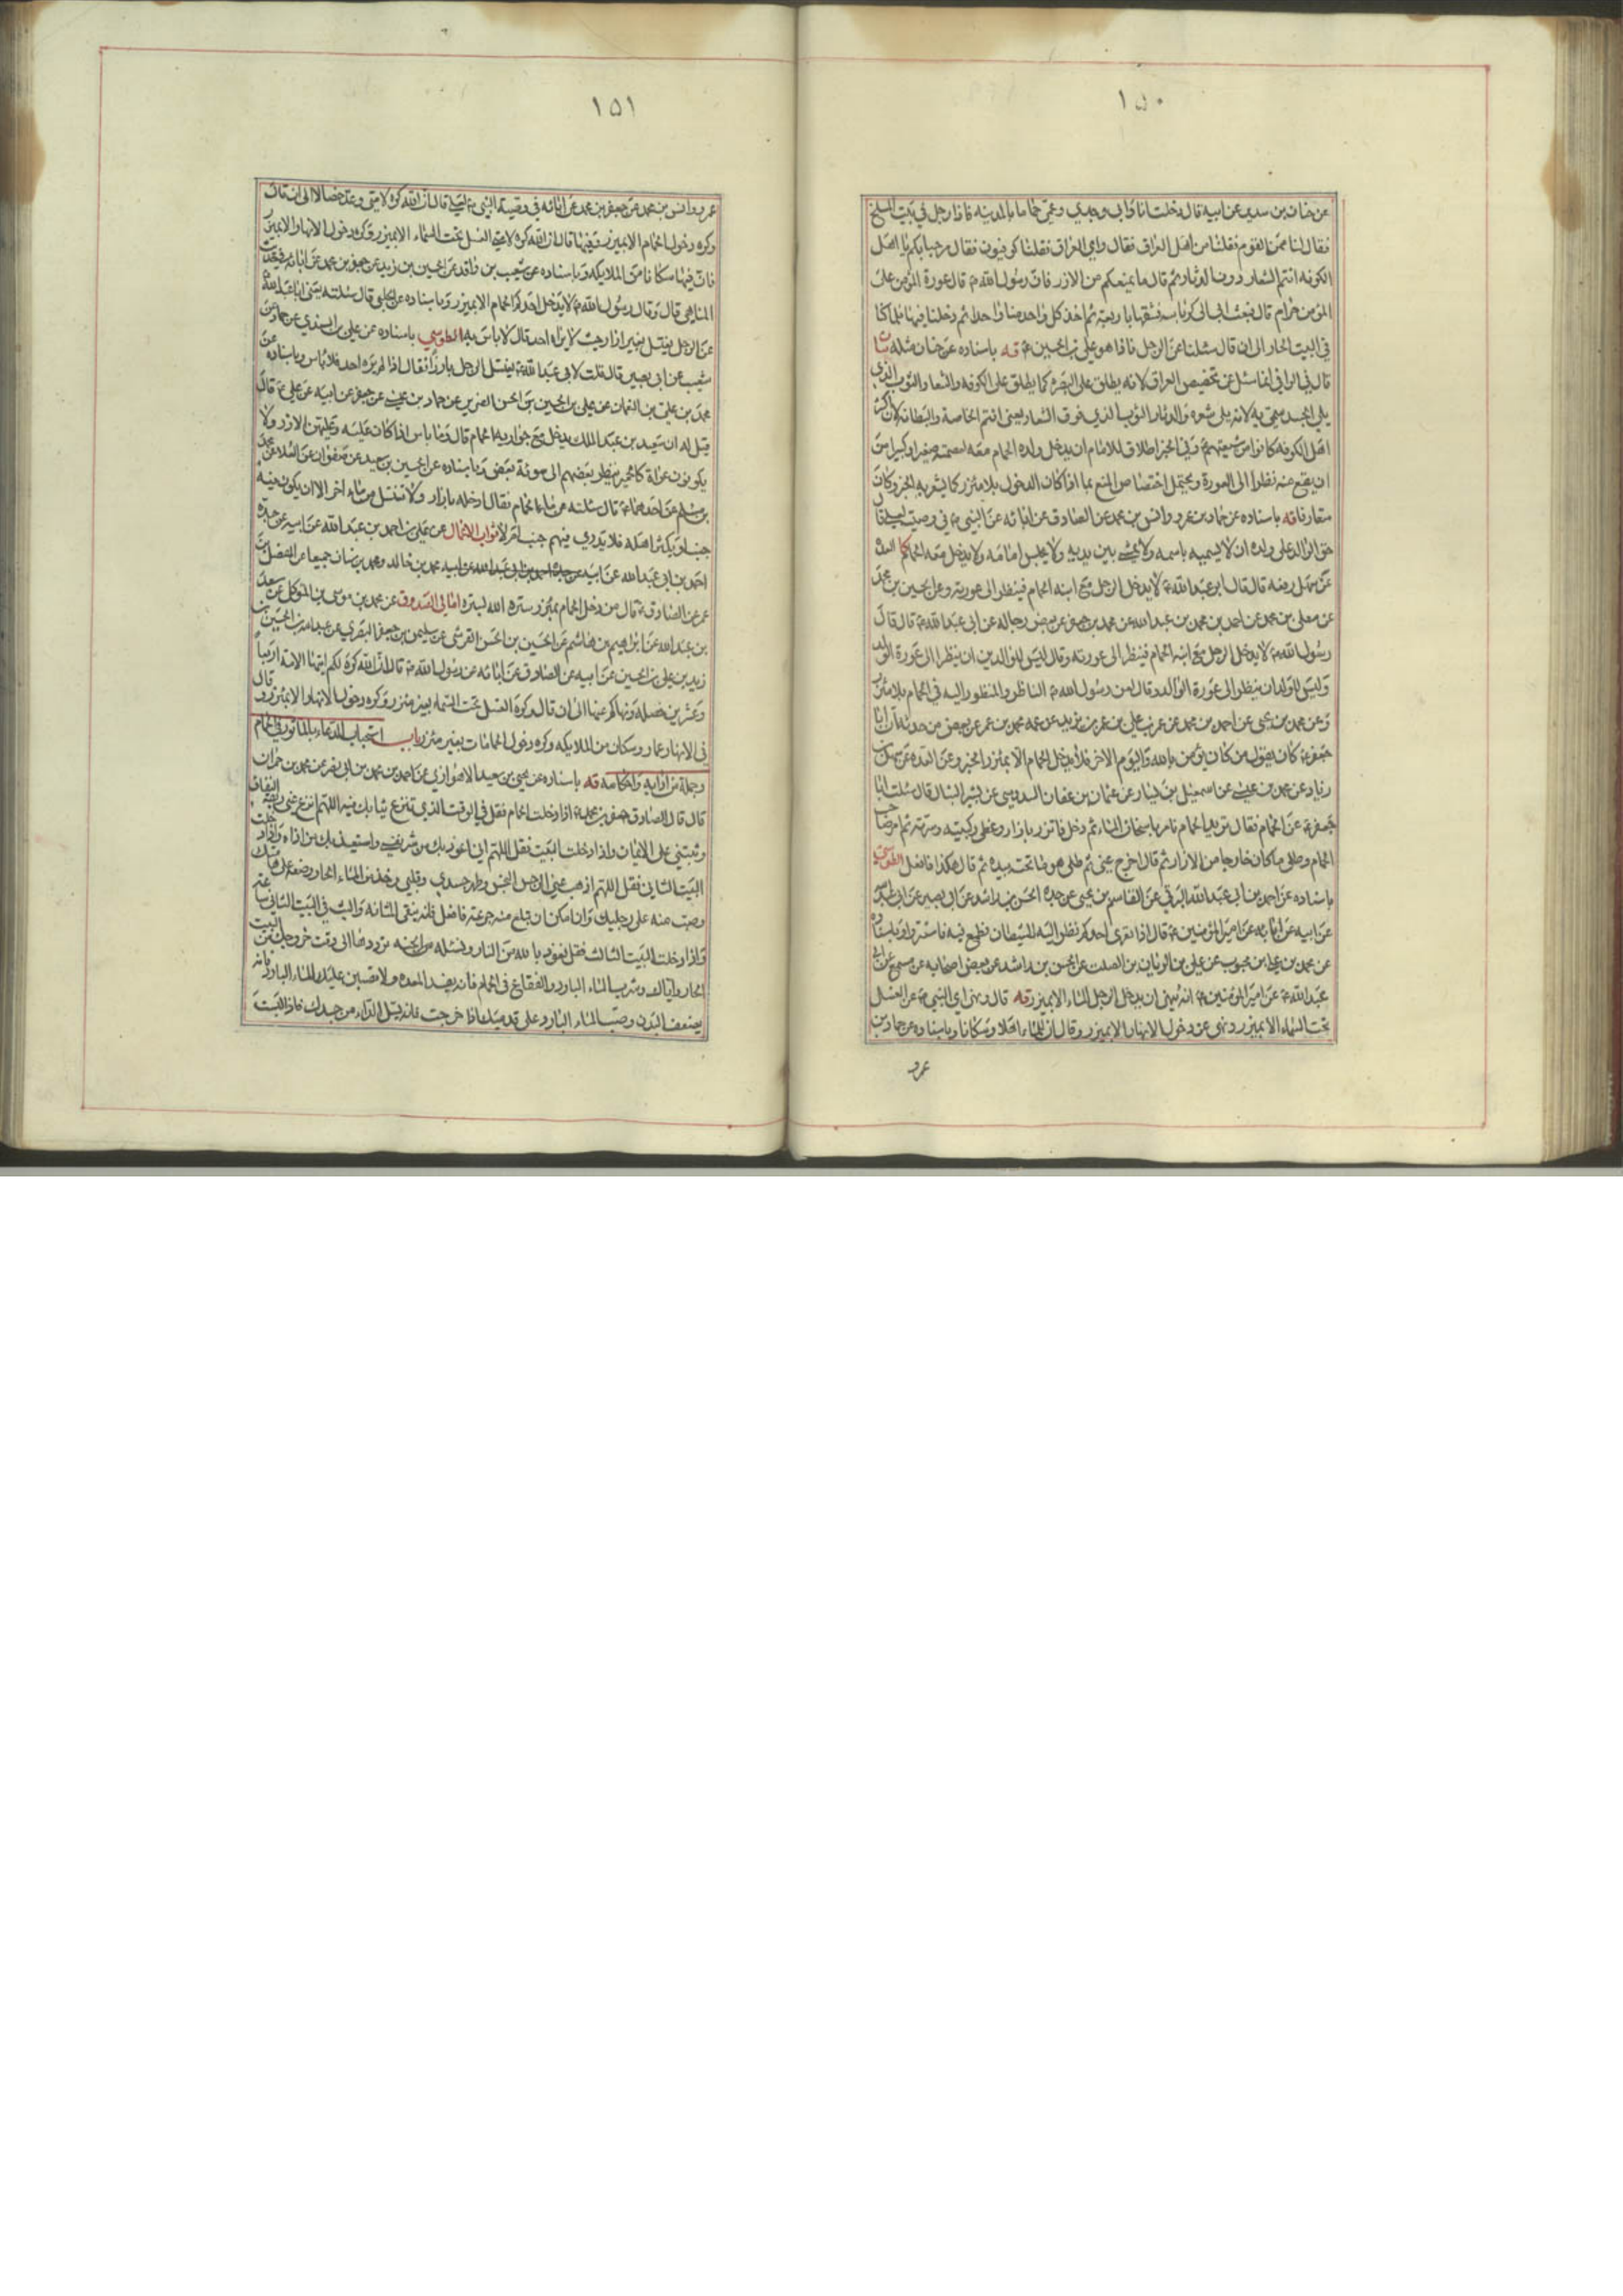 ١٥٠
عن حنان بن سدير عن ابيه قال دخلت انا وابي وجدي وعمي حماما بالمدينه فاذا رجل في بيت المسلخ
فقال لنا ممن القوم فقلنا من اهل العراق فقال واي العراق فقلنا كوفيون فقال مرحبا بكم يا اهل
الكوفه انتم الشعار دون الدثار ثم قال ما يمنعكم من الازر فان رسول الله ص قال عورة المؤمن على
المؤمن حرام قال فبعث الى ابي كرباسه فشقها باربعة ثم اخذ كل واحد منا واحدا ثم دخلنا فيها فلما كنا
في البيت الحار الى ان قال سئلنا عن الرجل فاذا هو علي بن الحسين ع قه باسناده عن حنان مثله بيان
قال في الوافي انما سئل عن تخصيص العراق لانه يطلق على البصره كما يطلق على الكوفه والشعار والثوب الذي
يلي الجسد سمي به لانه يلي شعره والدثار الثوب الذي فوق الشعار يعني انتم الخاصة والبطانه لان اكثر
اهل الكوفه كانوا من شيعتهم ع وفي الخبر اطلاق للامام ان يدخل ولده الحمام معه لعصمته صغيرا وكبيرا من
ان يقع منه نظر الى العورة ويحتمل اختصاص المنع بما اذا كان الدخول بلا مئزر كما يشعر به الخبر وكان
متعارفا قه باسناده عن حماد بن عمرو وانس بن محمد عن الصادق عن ابائه عن النبي ص في وصيته لعلي قال
حق الوالد على ولده ان لا يسميه باسمه ولا يمشي بين يديه ولا يجلس امامه ولا يدخل معه الحمام كا العدة
عن سهل رفعه قال قال ابو عبد الله ع لا يدخل الرجل مع ابنه الحمام فينظر الى عورته وعن الحسين بن محمد
عن معلى بن محمد عن احمد بن محمد بن عبد الله عن محمد بن جعفر عن بعض رجاله عن ابي عبد الله ع قال قال
رسول الله ص لا يدخل الرجل مع ابنه الحمام فينظر الى عورته وقال ليس للوالدين ان ينظرا الى عورة الولد
وليس للولد ان ينظر الى عورة الوالد وقال لعن رسول الله ص الناظر والمنظور اليه في الحمام بلا مئزر
وعن محمد بن يحيى عن احمد بن محمد عن عمر بن علي بن عمر بن يزيد عن عمه محمد بن عمر عن بعض من حدثه ان ابا
جعفر ع كان يقول من كان يؤمن بالله واليوم الاخر فلا يدخل الحمام الا بمئزر الخبر وعن العده عن سهل بن
زياد عن محمد بن عيسى عن اسمعيل بن يسار عن عثمان بن عفان السدوسي عن بشير النبال قال سئلت ابا
جعفر ع عن الحمام فقال تريد الحمام فامر باسخان الماء ثم دخل فاتزر بازار وغطى ركبتيه وسرته ثم امر صاحب
الحمام وطلى ما كان خارجا من الازار ثم قال اخرج عني ثم طلى هو ما تحته بيده ثم قال هكذا فافعل الطوسي
باسناده عن احمد بن ابي عبد الله البرقي عن القاسم بن يحيى عن جده الحسن بن راشد عن ابي بصير عن ابي عبد الله
عن ابيه عن ابائه عن امير المؤمنين ع قال اذا تعرى احدكم نظر اليه الشيطان فطمع فيه فاستتروا وباسناده
عن محمد بن علي بن محبوب عن علي بن الريان بن الصلت عن الحسن بن راشد عن بعض اصحابه عن مسمع عن ابي
عبد الله ع عن امير المؤمنين ع انه نهى ان يدخل الرجل الماء الا بمئزر قه قال ونهى اي النبي ص عن الغسل
تحت السماء الا بمئزر ونهى عن دخول الانهار الا بمئزر وقال ان للماء اهلا وسكانا وباسناده عن حماد بن
عمرو
١٥١
عمرو وانس بن محمد عن جعفر بن محمد عن ابائه في وصية النبي ص لعلي ع قال ان الله كره لامتي وعد خصالا الى ان قال
وكره دخول الحمام الا بمئزر
فان فيها سكانا من الملائكه وباسناده عن شعيب بن واقد عن الحسين بن زيد عن جعفر بن محمد عن ابائه في حديث
المناهي قال وقال رسول الله ص لا يدخل احدكم الحمام الا بمئزر وباسناده عن الحلبي قال سئلته يعني ابا عبد الله
عن الرجل يغتسل بغير ازار حيث لا يراه احد قال لا باس به الطوسي باسناده عن علي بن السندي عن حماد عن
شعيب عن ابي بصير قال قلت لابي عبد الله ع يغتسل الرجل بارزا فقال اذا لم يره احد فلا باس وباسناده عن
محمد بن علي بن النعمان عن يحيى بن الحسين بن الحسن الضرير عن حماد بن عيسى عن جعفر عن ابيه عن علي ع قال
قيل له ان سعيد بن عبد الملك يدخل مع جواريه الحمام قال وما باس اذا كان عليه وعليهن الازر ولا
يكونون عراة كالحمير ينظر بعضهم الى سوئة بعض وباسناده عن الحسين بن سعيد عن صفوان عن العلا عن محمد
بن مسلم عن احدهما ع قال سئلته عن ماء الحمام فقال ادخله بازار ولا تغتسل من ماء اخر الا ان يكون فيه
جنب او يكثر اهله فلا يدري فيهم جنب ام لا ثواب الاعمال عن علي بن احمد بن عبد الله عن ابيه عن جده
احمد بن ابي عبد الله عن ابيه محمد بن خالد ومحمد بن سنان جميعا عن المفضل بن
عمر عن الصادق ع قال من دخل الحمام بمئزر ستره الله بستره امالي الصدوق عن محمد بن موسى بن المتوكل عن سعد
بن عبد الله عن ابراهيم بن هاشم عن الحسين بن الحسن القرشي عن سليمن بن جعفر البصري عن عبد الله بن الحسين بن
زيد بن علي بن الحسين عن ابيه عن الصادق عن ابائه عن رسول الله ص قال ان الله كره لكم ايتها الامة اربعا
وعشرين خصله ونهاكم عنها الى ان قال وكره الغسل تحت السماء بغير مئزر وكره دخول الانهار الا بمئزر وقال
في الانهار عمار وسكان من الملائكه وكره دخول الحمامات بغير مئزر باب استحباب الدعاء بالماثور في الحمام
وجملة من ادابه واحكامه قه باسناده عن يحيى بن سعيد الاهوازي عن احمد بن محمد بن ابي نصر عن محمد بن حمران
قال قال الصادق جعفر بن محمد ع اذا دخلت الحمام فقل في الوقت الذي تنزع ثيابك فيه اللهم انزع عني ربقة النفاق
وثبتني على الايمان واذا دخلت البيت فقل اللهم اني اعوذ بك من شر نفسي واستعيذ بك من اذاه واذا دخلت
البيت الثاني فقل اللهم اذهب عني الرجس النجس وطهر جسدي وقلبي وخذ من الماء الحار وضعه على هامتك
وصب منه على رجليك وان امكن ان تبلع منه جرعة فافعل فانه ينقي المثانه والبث في البيت الثاني ساعة
واذا دخلت البيت الثالث فقل نعوذ بالله من النار ونسئله الجنه ترددها الى وقت خروجك من البيت
الحار واياك وشرب الماء البارد والفقاع في الحمام فانه يفسد المعده ولا تصبن عليك الماء البارد فانه
يضعف البدن وصب الماء البارد على قدميك اذا خرجت فانه يسل الداء من جسدك فاذا لبست